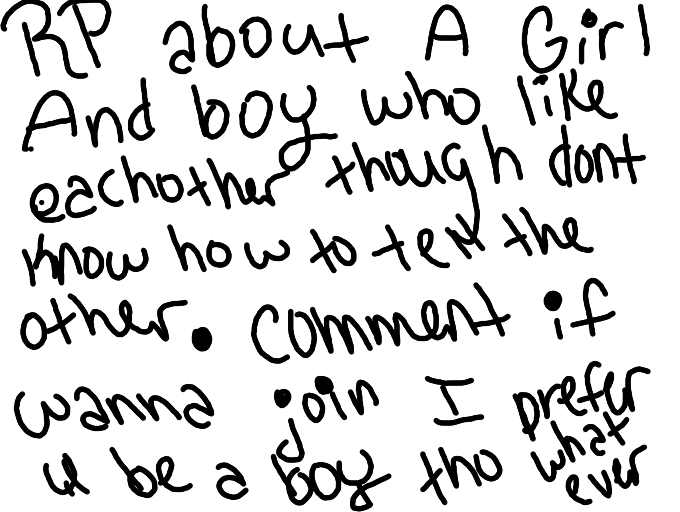 RP about A Girl
And boy who like
eachother though dont
know how to tell the
other. Comment if
wanna join I prefer
u be a boy tho what ever